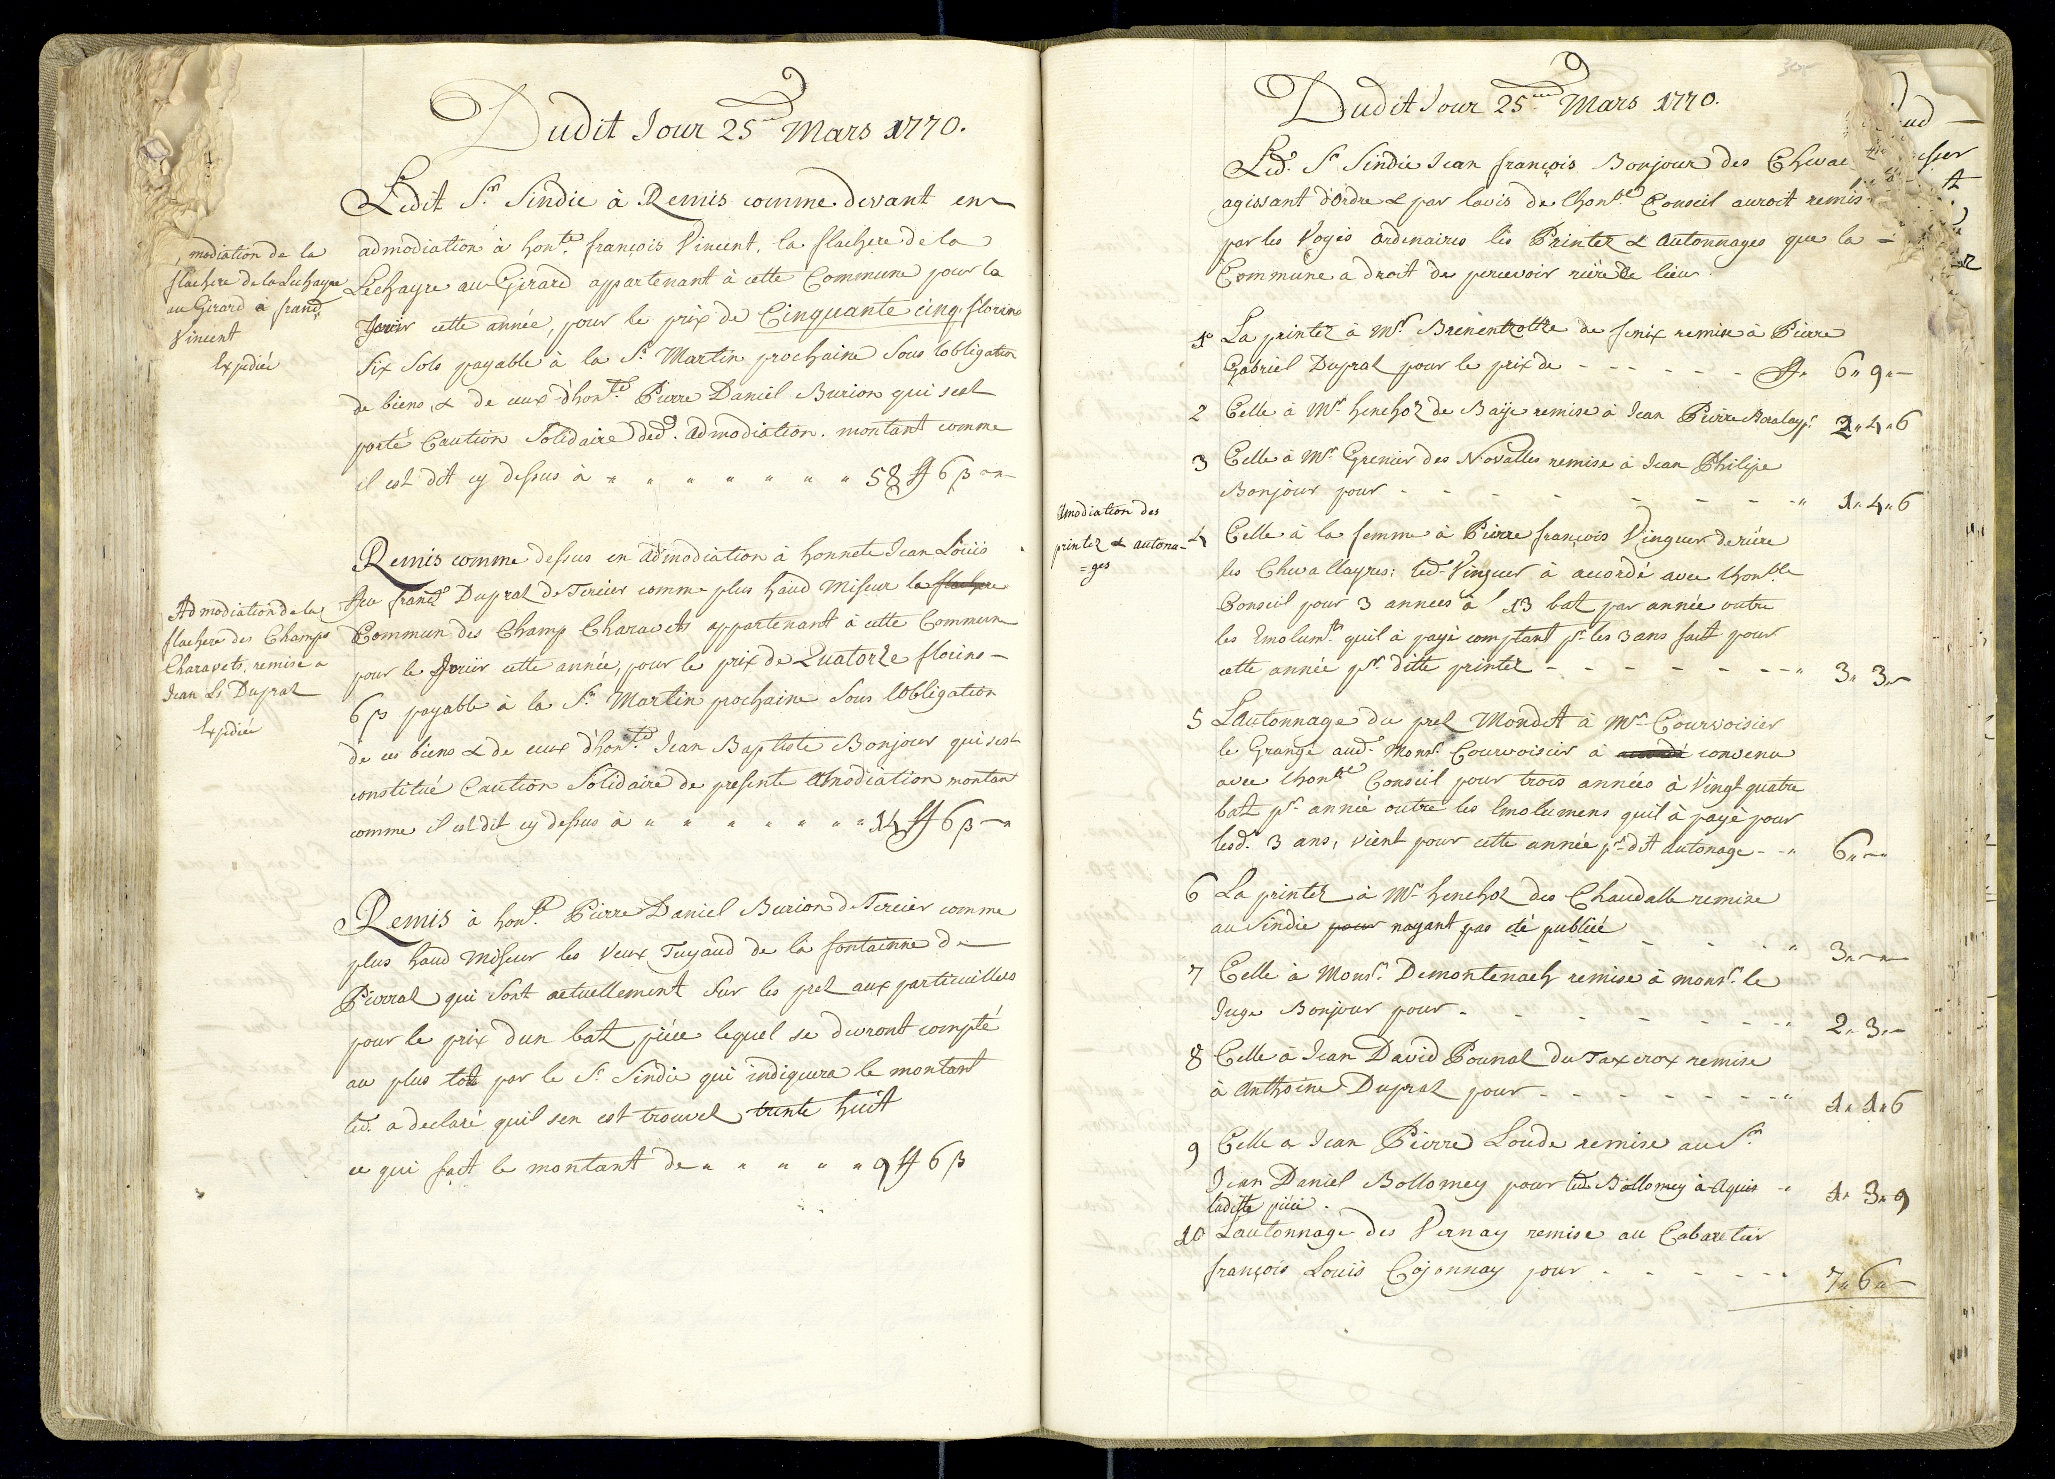 Dudit Jour 25me Mars 1770.
Ledit Sr. Sindic à Remis comme devant en
admodiation à honte. françois Vincent, la flachere de la
Lechayre au Girard appartenant à cette Commune pour la
Jouir cette année, pour le prix de Cinquante cinq florins
Six Sols payable à la St. Martin prochaine Sous lobligation
de biens, & de ceux d'honte. Pierre Daniel Burion qui sest
porté Caution Solidaire de lad. admodiation. montant comme
il est dit cy dessus à " " " " " " " 58 ff 6 β
,modiation de la
flachere de la Lechayre
au Girard à franç
Vincent
Expediée
Remis comme dessus en admodiation à honnete Jean Louïs
feu franç Dupraz de Tercier comme plus haud Miseur la flachere
Commun des Champ Charavets appartenant à cette Commune
pour le Jouïr cette année, pour le prix de Quatorze florins
6 β payable à la St. Martin prochaine Sous lObligation
de ces biens & de ceux d'honte. Jean Baptiste Bonjour qui sest
constitué Caution Solidaire de presente Amodiation montant
comme il est dit cy dessus à " " " " " " " 14 ff 6 β
Admodiation de la
flachere des Champs
Charavets, remise a
Jean Ls Dupraz
Expediée
Remis à honte. Pierre Daniel Burion de Tercier comme
plus haud Miseur les Veux Tuyaud de la fontainne de
Pierraz qui sont actuellement Sur les prez aux particuilliers
pour le prix d'un batz pièce lequel se devront compté
au plus totz par le Sr. Sindic qui indiquera le montant
led. a declaré quil sen est trouvez trente huit
ce qui fait le montant de " " " " " 9 ff 6 β
Dudit Jour 25me Mars 1770.
Led. Sr. Sindic Jean françois Bonjour des Chevae
agissant d'Ordre & par lavis de lhonble. Conseil auroit remis
par les Voyes ordinaires les Printez & Autonnages que la
Commune a droit de percevoir riere de lieu.
1 La printez à Mr. Brenentzoltre de fenix remise à Pierre
Gabriel Dupraz pour le prix de - - - - - - ff. 6 " 9 " -
2 Celle à Mr. henchoz de Baÿe remise à Jean Pierre 2 " 4 " 6
3 Celle à Mr. Grenier des Novalles remise à Jean Philipe
Bonjour pour - - - - - - - - " 1 " 4 " 6
Amodiation des
printez & autona-
=ges
4 Celle à la femme à Pierre françois Vinguer deriére
les Chevallayres: led. Vinguer à acordé avec lhonble
Conseil pour 3 annees à 13 bat par année outre
les Emolumts. quil à payé comptant pr les 3 ans fait pour
cette année pr. ditte printez - - - - - - - " 3 " 3 " -
5 LAutonnage du prez Mondet à Mr. Courvoisier
le Grange aud. Monsr. Courvoisier à convenu
avec lhonble Conseil pour trois années à Vingt quatre
bat pr. année outre les Emolumens quil à payé pour
lesd. 3 ans, vient pour cette année pr. dit autonage - - " 6 " - "
6 La printez à Mr. henchoz des Chaudalle remise
au Sindic pour nayant pas été publiée - - - - " 3 " - "
7 Celle à Monsr. Demontenach remise à monsr. le
Juge Bonjour pour - - - - - - - - " 2 " 3 " -
8 Celle à Jean David Pournaz du Taxcrox remise
à Anthoine Dupraz pour - - - - - - - " 1 " 1 " 6
9 Celle a Jean Pierre Loude remise au Sr
Jean Daniel Bollomey pour led. Bollomey à Aquis " 1 " 3 " 9
laditte piéce.
10 Lautonnage des Vernay remise au Cabaretier
françois Louïs Cojonnay pour - - - - - - 7 " 6 " -